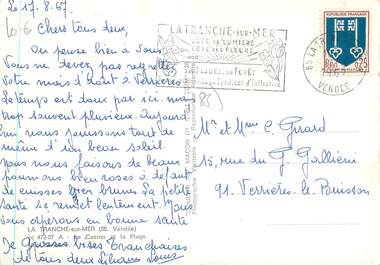 Le 17.8.67
Chers tous deux,
On pense bien à vous
Vous ne devez pas regretter
votre mois d'Août à Verrières
le temps est doux par ici, mais
trop souvent pluvieux. Aujourd'
hui nous jouissons tout de
même d'un beau soleil.
nous nous faisons de beaux
poumons bien roses à défaut
de cuisses bien brunes. La petite
santé se remet lentement. Nous
vous espérons en bonne santé
Grosses bises
de tous deux
LA TRANCHE-sur-MER
CÔTE DE LUMIÈRE
CÔTE DES FLEURS
SA FORÊT
Syndicat d'Initiative
REPUBLIQUE FRANÇAISE
0,25
85 LA TR
VENDÉE
Mr et Mme C. Girard
15, rue du G. Galliéni
91. Verrières le Buisson
LA TRANCHE-sur-MER (85. Vendée)
472-07 A - Le Casino et la Plage.